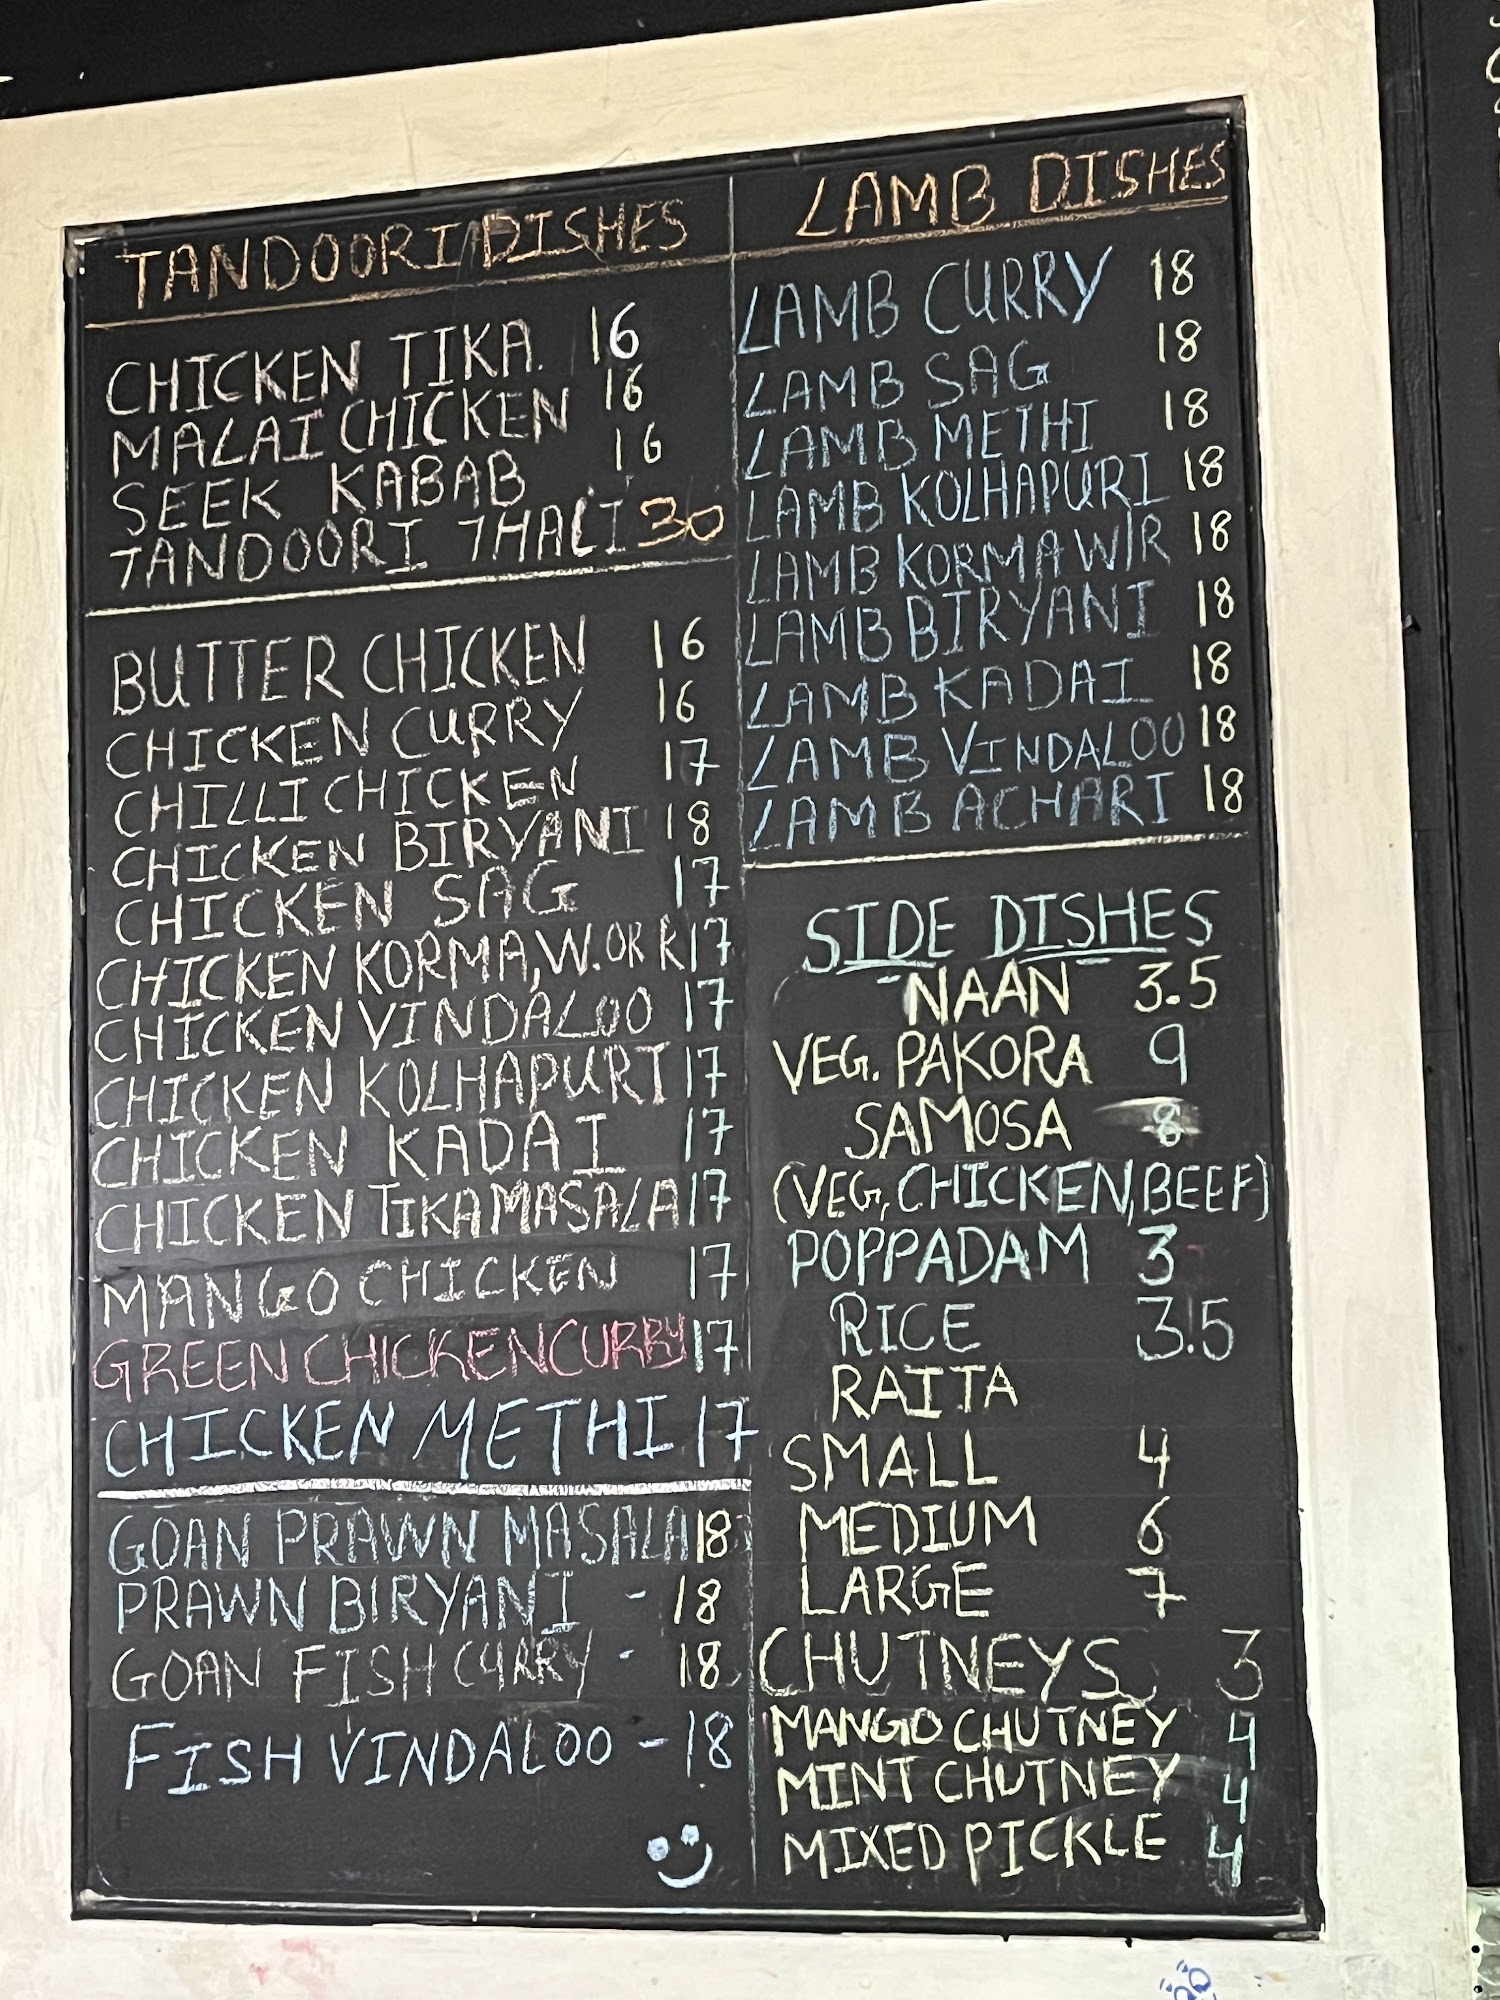 TANDOORI DISHES
CHICKEN TIKA. 16
MALAI CHICKEN 16
SEEK KABAB 16
TANDOORI THALI 30
BUTTER CHICKEN 16
CHICKEN CURRY 16
CHILLI CHICKEN 17
CHICKEN BIRYANI 18
CHICKEN SAG 17
CHICKEN KORMA, W. OR R 17
CHICKEN VINDALOO 17
CHICKEN KOLHAPURI 17
CHICKEN KADAI 17
CHICKEN TIKA MASALA 17
MANGO CHICKEN 17
GREEN CHICKEN CURRY 17
CHICKEN METHI 17
GOAN PRAWN MASALA 18
PRAWN BIRYANI - 18
GOAN FISH CURRY - 18
FISH VINDALOO - 18
LAMB DISHES
LAMB CURRY 18
LAMB SAG 18
LAMB METHI 18
LAMB KOLHAPURI 18
LAMB KORMA W/R 18
LAMB BIRYANI 18
LAMB KADAI 18
LAMB VINDALOO 18
LAMB ACHARI 18
SIDE DISHES
NAAN 3.5
VEG. PAKORA 9
SAMOSA 8
(VEG, CHICKEN, BEEF)
POPPADAM 3
RICE 3.5
RAITA
SMALL 4
MEDIUM 6
LARGE 7
CHUTNEYS 3
MANGO CHUTNEY 4
MINT CHUTNEY 4
MIXED PICKLE 4